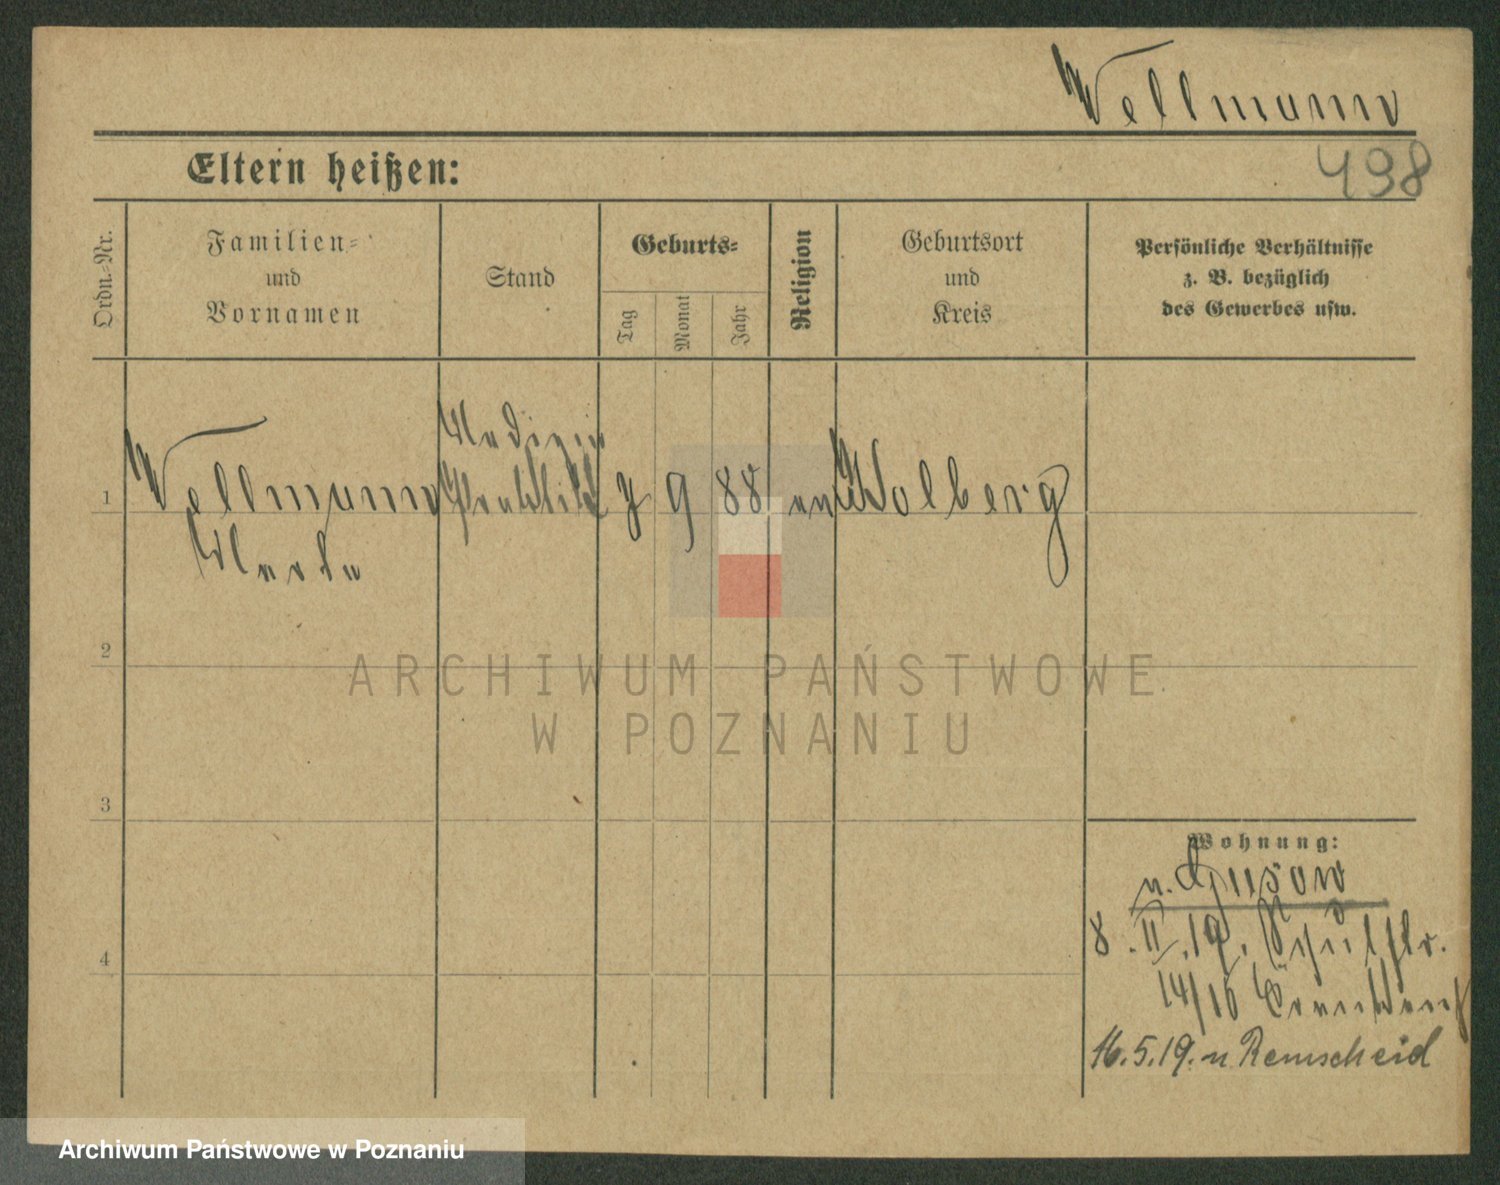 Wellmann
498
Eltern heißen:
Ordn.-Nr.
Familien-
und
Vornamen
Stand
Geburts-
Tag
Monat
Jahr
Religion
Geburtsort
und
Kreis
Persönliche Verhältnisse
z. B. bezüglich
des Gewerbes usw.
Medizin
1 Wellmann Praktik 7 9 88 Kolberg
2
3
4
ARCHIWUM PAŃSTWOWE
W POZNANIU
Wohnung:
n.
8. II. 19.
14/16
16.5.19. n Remscheid
Archiwum Państwowe w Poznaniu